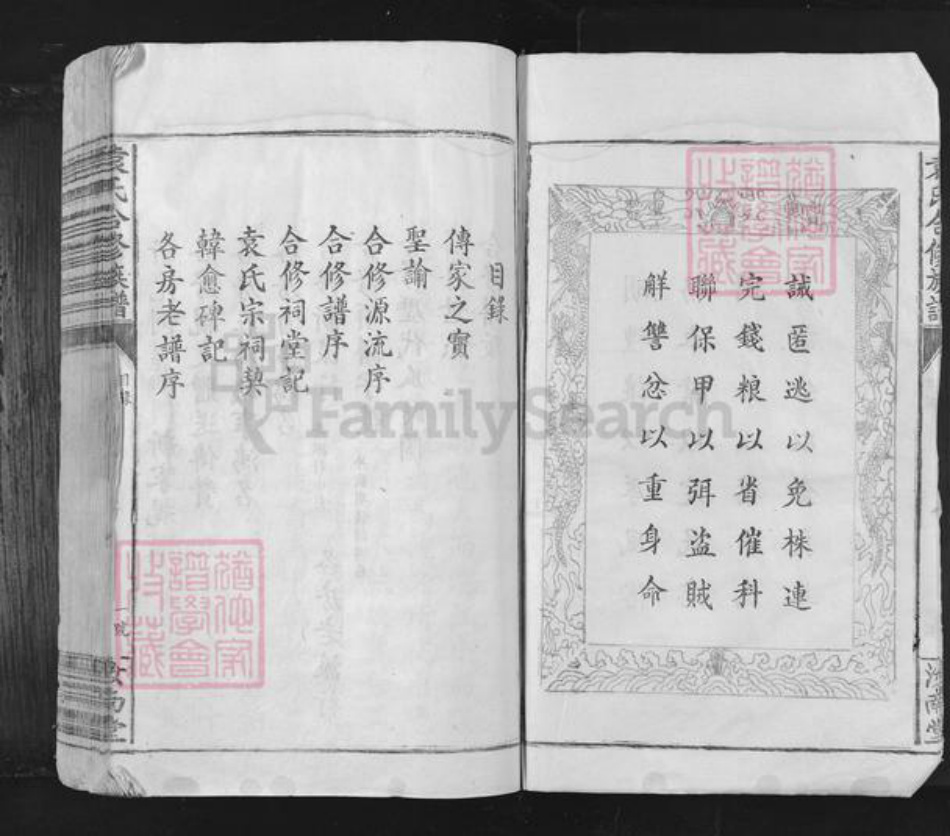 誡匿逃以免株連
完錢粮以省催科
聯保甲以弭盜賊
觧讐忿以重身命
袁氏合修族譜
目錄
傳家之寶
聖諭
合修源流序
合修譜序
合修祠堂記
袁氏宗祠契
韓愈碑記
各房老譜序
袁氏合修族譜
目錄
汝南堂
FamilySearch